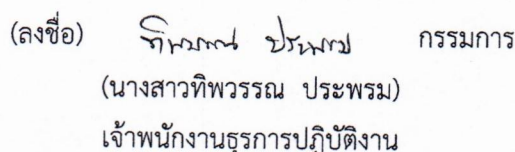 (ลงชื่อ) ทิพวรรณ ประพรม กรรมการ
(นางสาวทิพวรรณ ประพรม)
เจ้าพนักงานธุรการปฏิบัติงาน